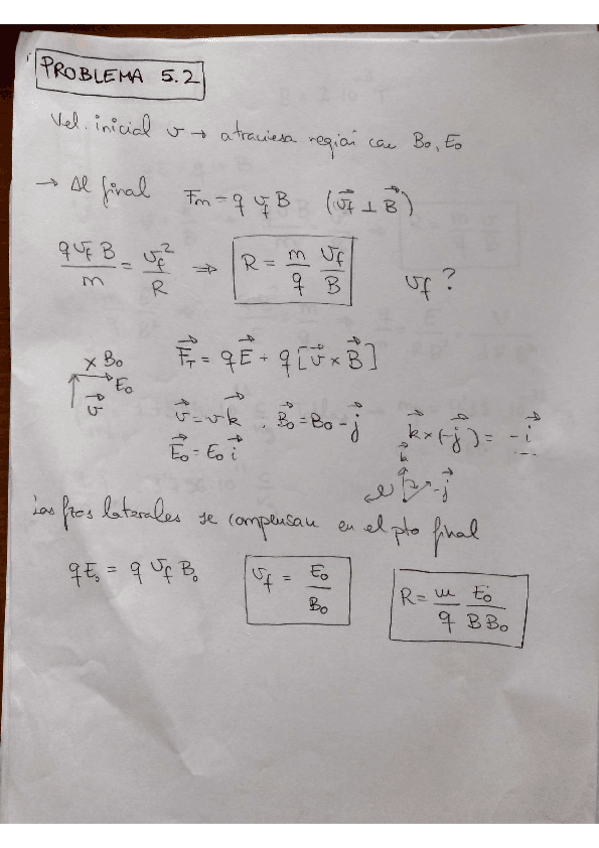 PROBLEMA 5.2
Vel. inicial v → atraviesa región con B₀, E₀
→ Al final Fm = q v_f B (v⃗_f ⊥ B⃗)
q v_f B / m = v_f² / R ⇒ R = m/q v_f/B v_f?
x B₀ F⃗_T = qE⃗ + q[v⃗ × B⃗]
E₀
v⃗ v⃗ = v k⃗ , B⃗₀ = B₀ -j⃗ k⃗ × (-j⃗) = -i⃗
E⃗₀ = E₀ i⃗
k
-j⃗
Las fzas laterales se compensan en el pto final
qE₀ = q v_f B₀ v_f = E₀/B₀ R = m/q E₀/BB₀